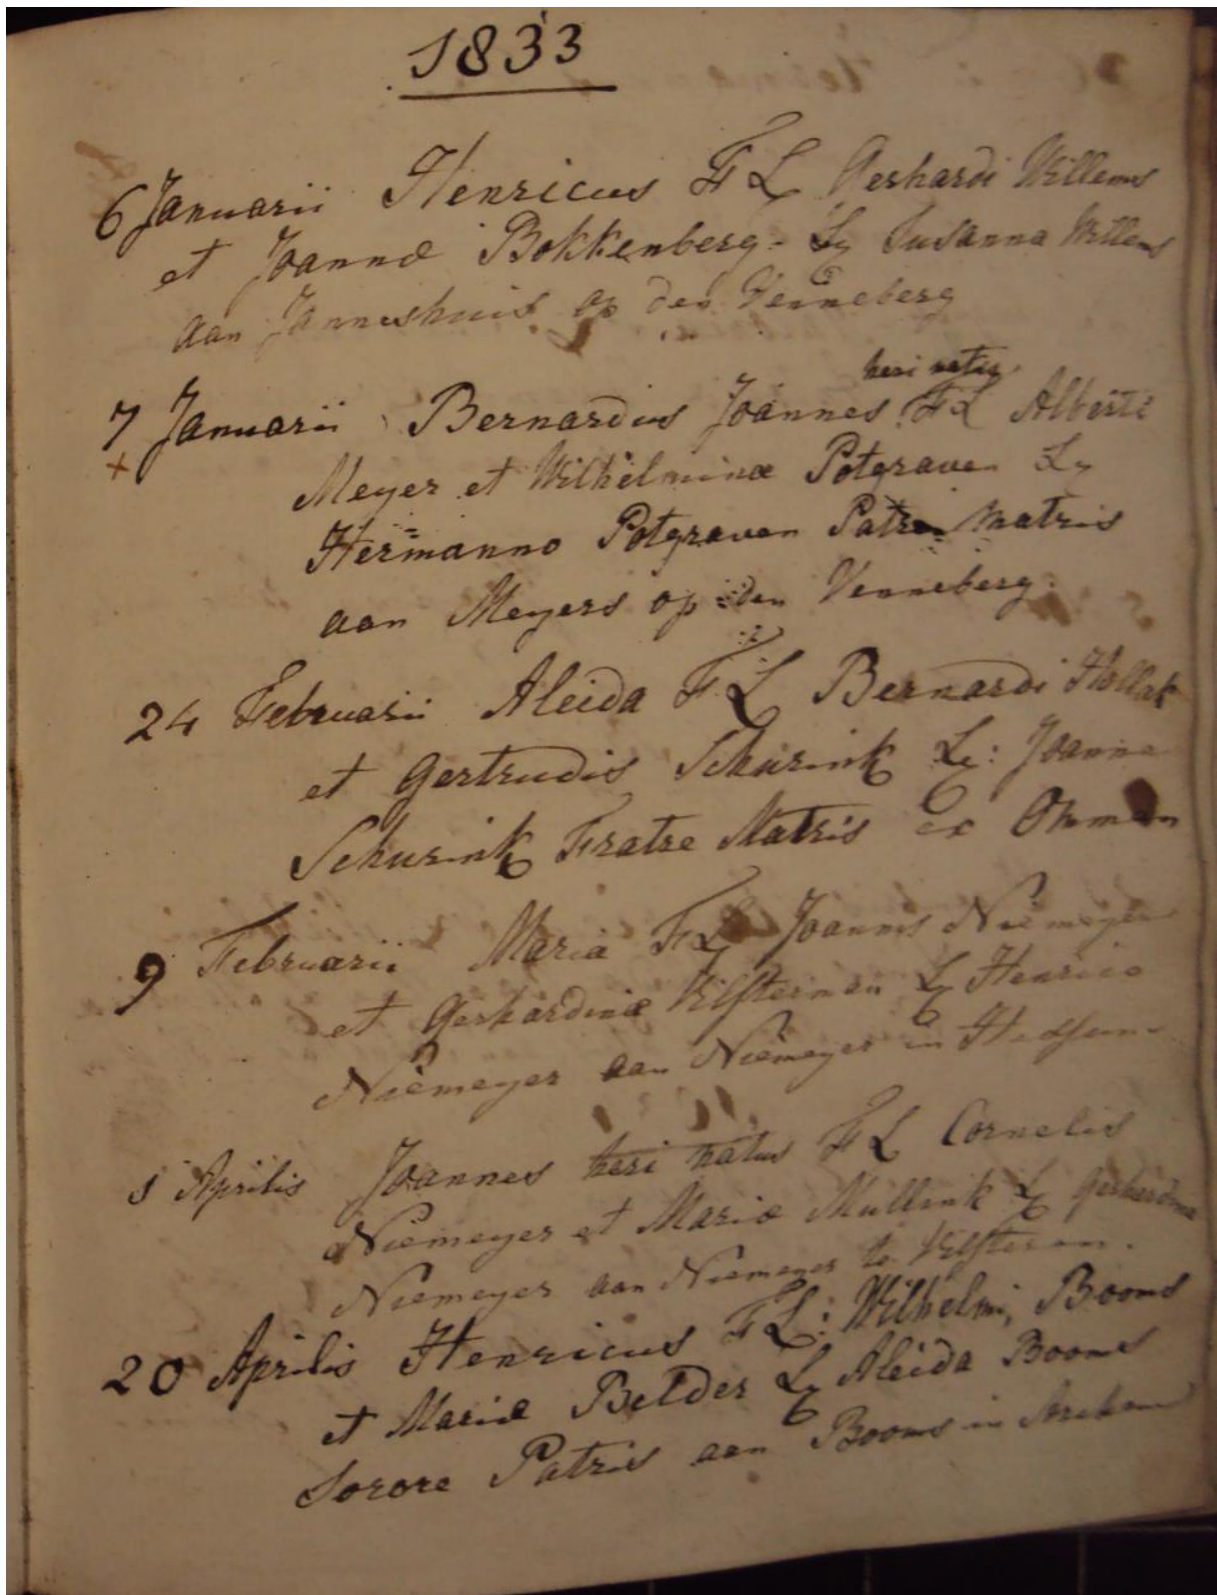 1833
6 Januarii Henricus FL Gerhardi Willems
et Joannæ Bokkenberg - Lg Susanna Willems
aan Janneshuis op den Venneberg
heri natus
7 Januarii Bernardus Joannes FL Alberti
Meyer et Wilhelminæ Potgraven Lg
Hermanno Potgraven Patre Matris
aan Meyers op den Venneberg.
24 Februarii Aleida FL Bernardi Hollak
et Gertrudis Schurink Lg: Joanne
Schurink Fratre Matris ex Ommen
9 Februarii Maria FL Joannis Niemeyer
et Gerhardinæ Vilsterman Lg Henrico
Niemeyer aan Niemeyer in Hessum
5 Aprilis Joannes heri natus FL Cornelis
Niemeyer et Mariæ Mullink Lg Gerhardina
Niemeyer aan Niemeyer te Vilsteren.
20 Aprilis Henricus FL: Wilhelmi, Booms
et Mariæ Belder Lg Aleida Booms
Sorore Patris aan Booms in